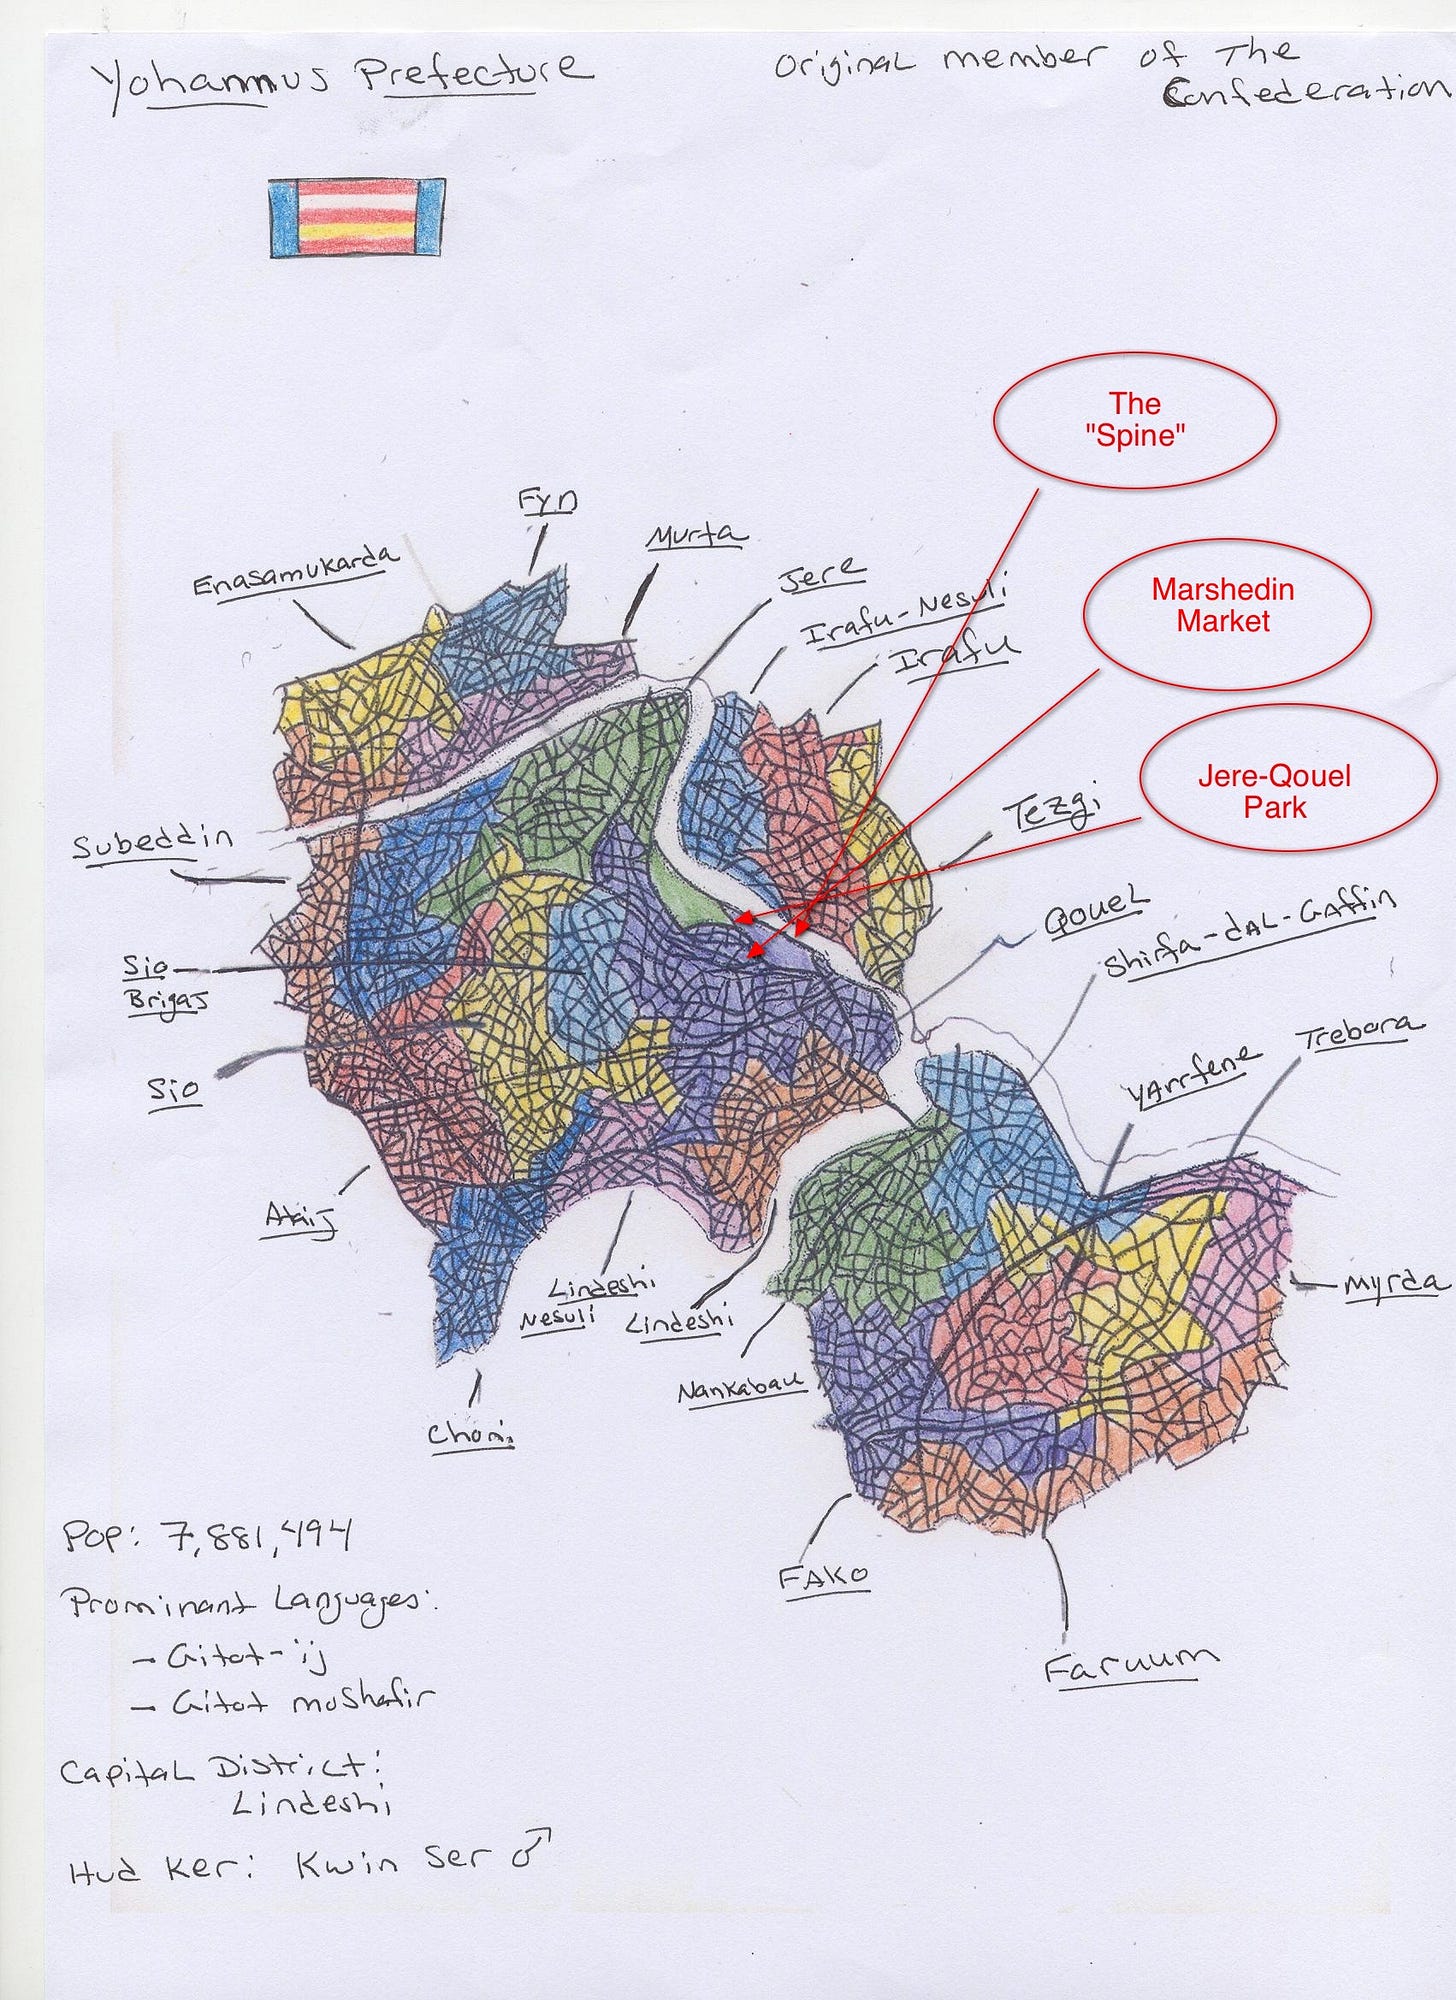 Yohannus Prefecture
Original member of The
Confederation
The
"Spine"
Fyn
Murta
Enasamukarda
Jere
Irafu-Nesuli
Irafu
Marshedin
Market
Jere-Qouel
Park
Tezgi
Subeddin
Qouel
Shirfa-dal-Gaffin
Sio
Brigas
Trebora
Yarrfene
Sio
Ataij
Lindeshi
Nesuli
Lindeshi
Myrda
Nankabau
Choni
Pop: 7,881,494
FAKO
Prominant Languages:
- Gitot-ij
- Gitot moShafir
Faruum
Capital District:
Lindeshi
Hud Ker: Kwin Ser ♂